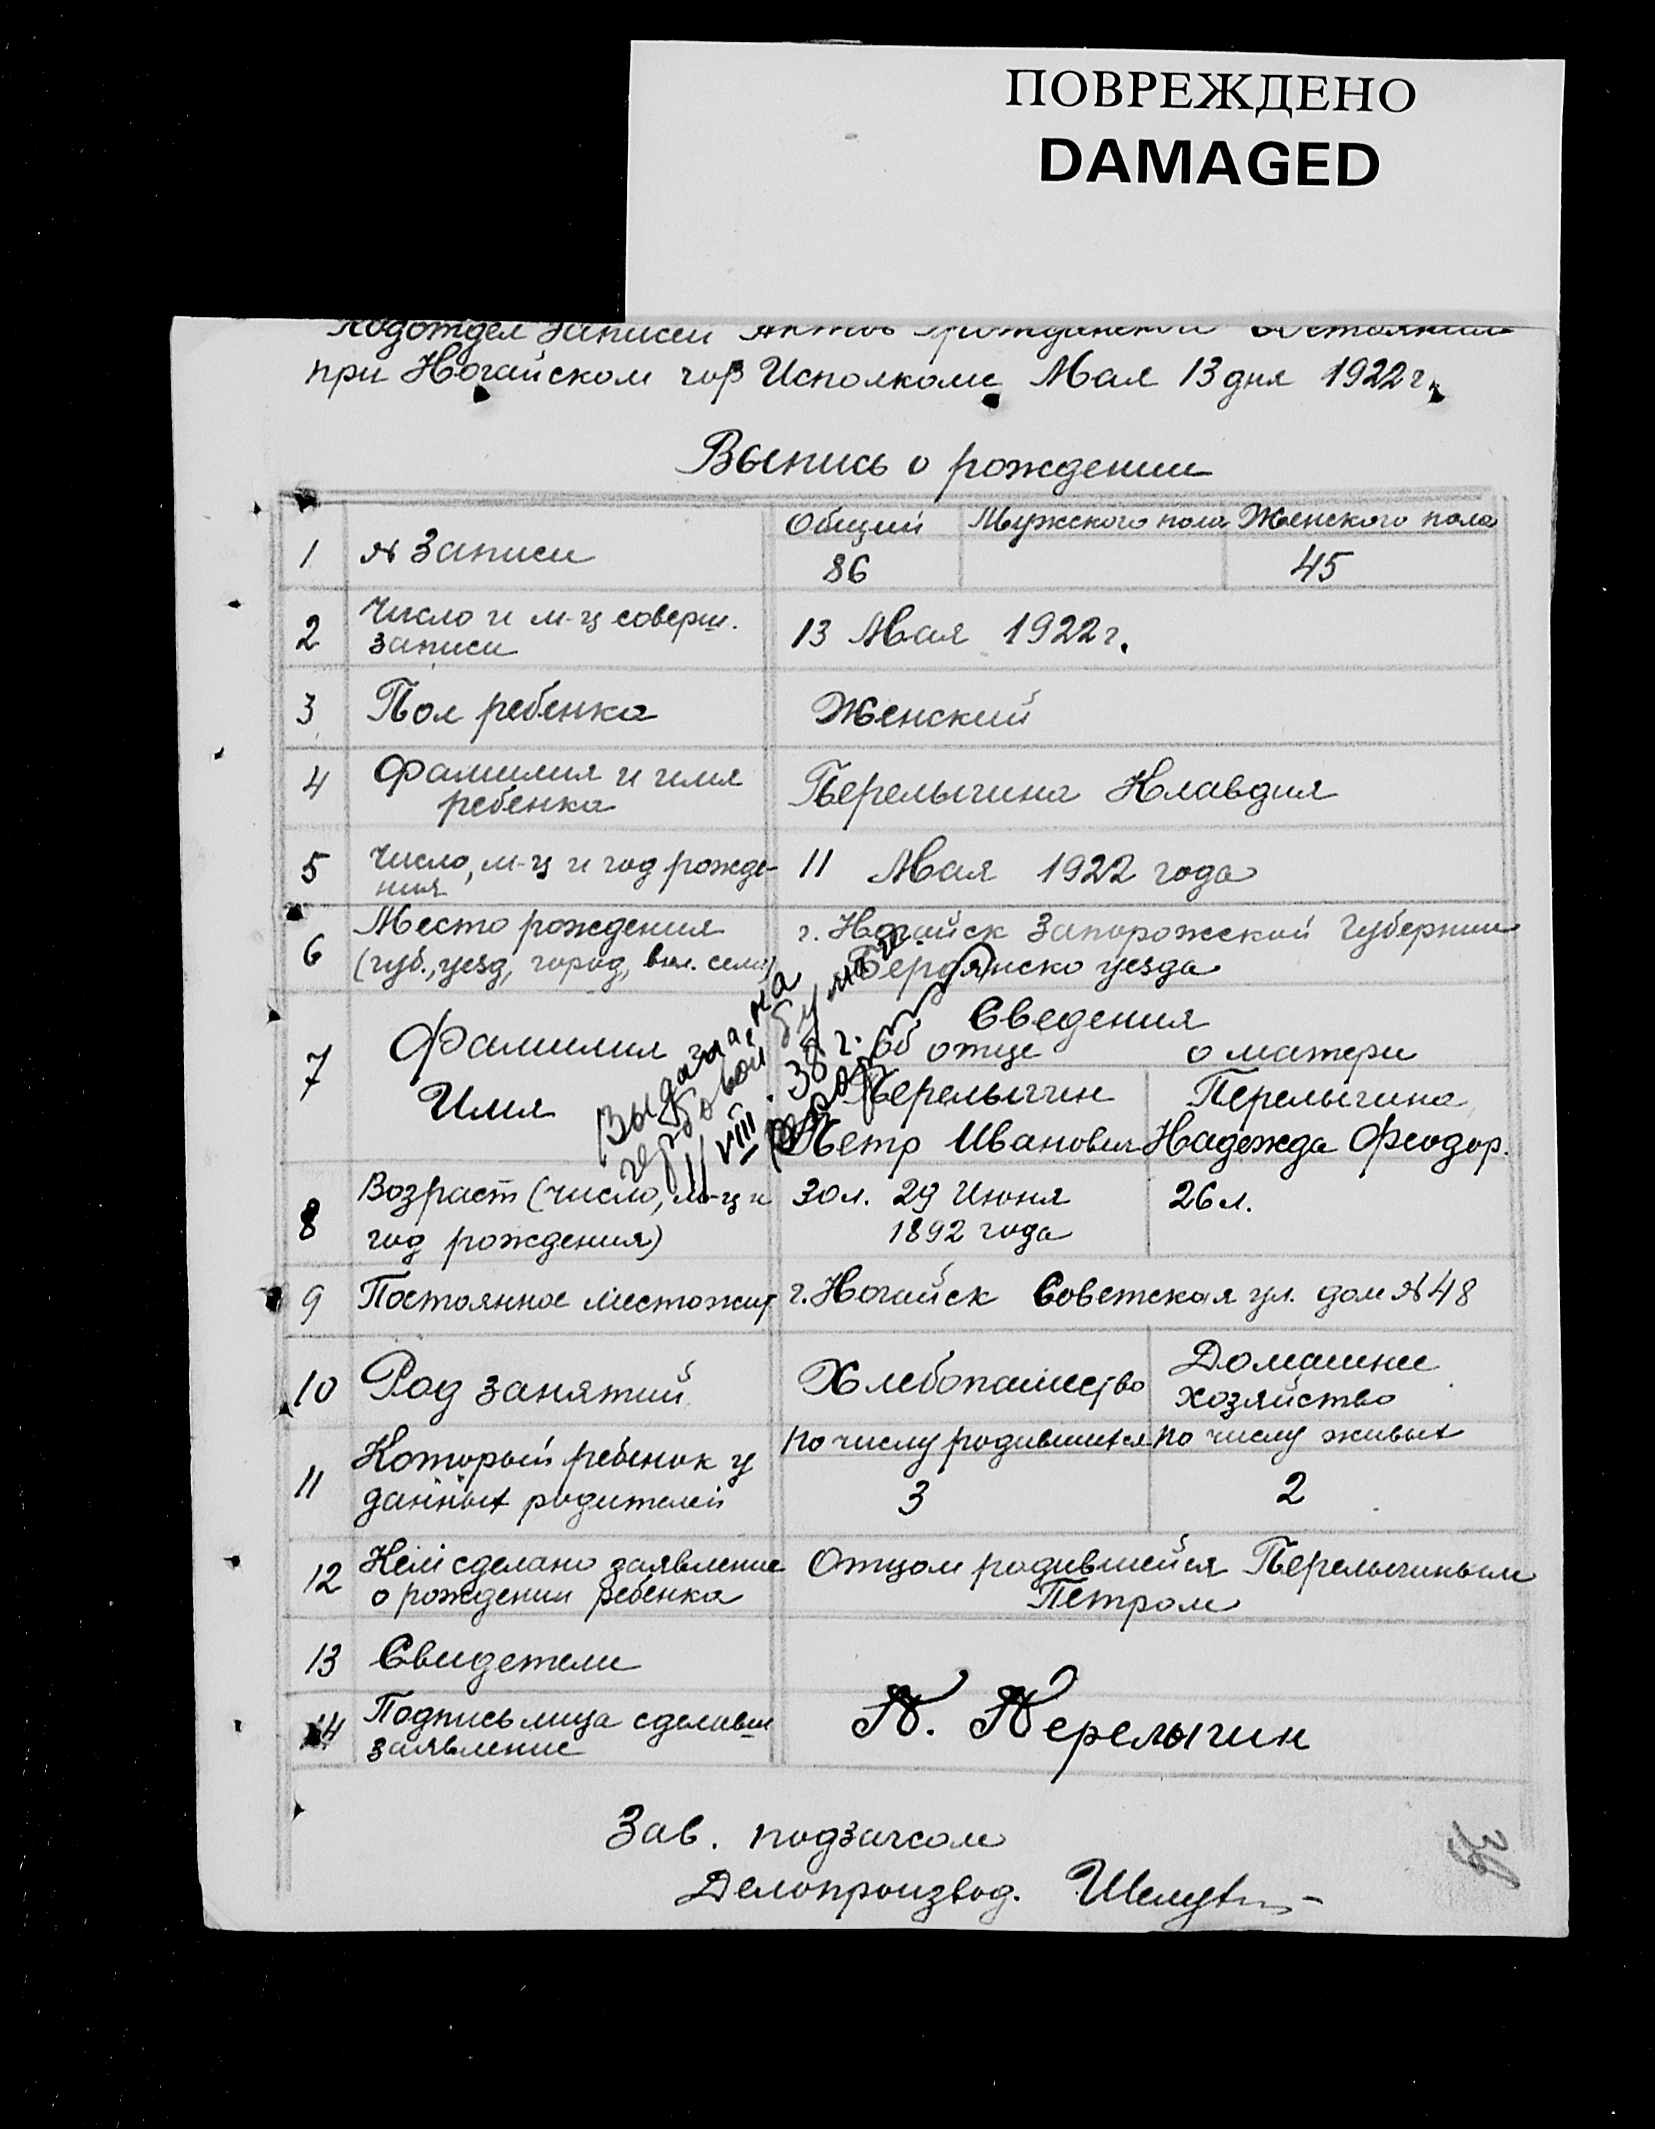 ПОВРЕЖДЕНО
DAMAGED
Подотдел Записи Актов Гражданского Состояния
при Ногайском гор Исполкоме Мая 13 дня 1922 г.
Выпись о рождении
1 № Записи Общий Мужского пола Женского пола
86 45
2 Число и м-ц соверш. записи 13 Мая 1922 г.
3 Пол ребенка Женский
4 Фамилия и имя ребенка Перелыгина Клавдия
5 Число, м-ц и год рождения 11 Мая 1922 года
6 Место рождения г. Ногайск Запорожской Губернии
(губ., уезд, город, вол. село) Бердянско уезда
Сведения
7 Фамилия Об отце о матери
Имя Перелыгин Перелыгина
Петр Иванович Надежда Феодор.
Выдана на
гербовой бумаге
11/VIII. 38 г.
8 Возраст (число, м-ц и 30 л. 29 Июня 26 л.
год рождения) 1892 года
9 Постоянное местожит г. Ногайск Советская ул. дом № 48
10 Род занятий Хлебопашество Домашнее
хозяйство
11 Который ребенок у По числу родившихся По числу живых
данных родителей 3 2
12 Кем сделано заявление Отцом родившейся Перелыгиным
о рождении ребенка Петром
13 Свидетели
14 Подпись лица сделавш П. Перелыгин
заявление
Зав. подзагсом
Делопроизвод.